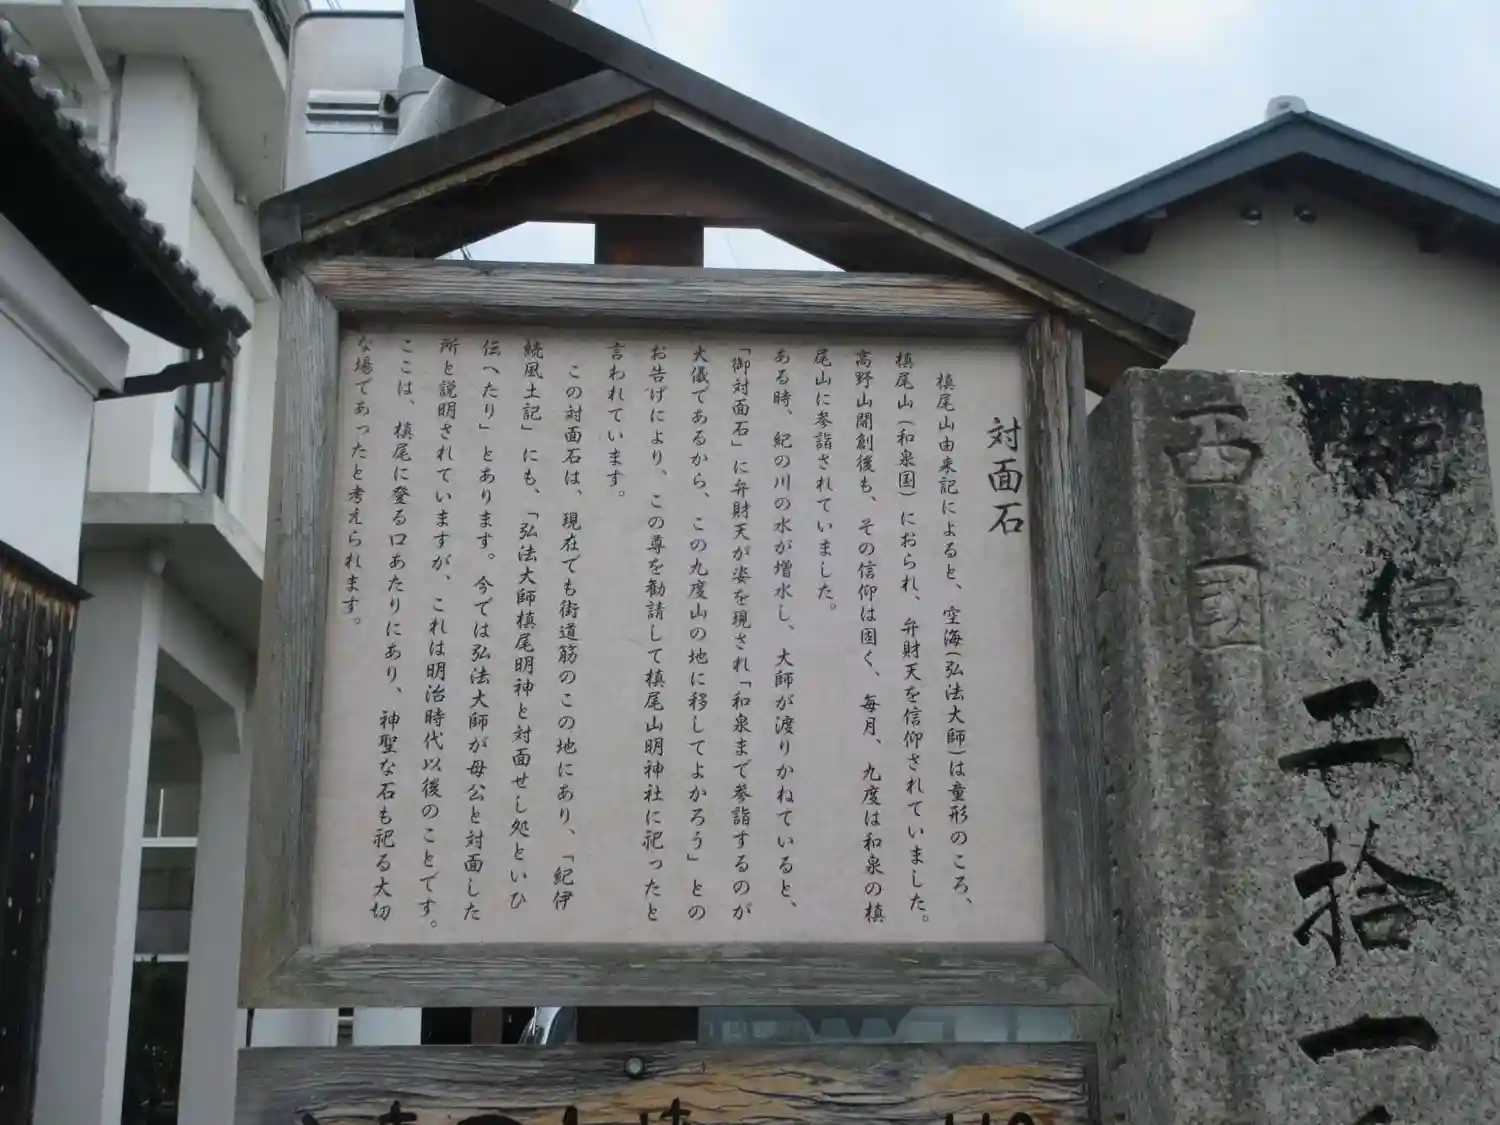 対面石
槙尾山由来記によると、空海(弘法大師)は童形のころ、
槙尾山(和泉国)におられ、弁財天を信仰されていました。
高野山開創後も、その信仰は固く、毎月、九度は和泉の槙
尾山に参詣されていました。
ある時、紀の川の水が増水し、大師が渡りかねていると、
「御対面石」に弁財天が姿を現され「和泉まで参詣するのが
大儀であるから、この九度山の地に移してよかろう」との
お告げにより、この尊を勧請して槙尾山明神社に祀ったと
言われています。
この対面石は、現在でも街道筋のこの地にあり、「紀伊
続風土記」にも、「弘法大師槙尾明神と対面せし処といひ
伝へたり」とあります。今では弘法大師が母公と対面した
所と説明されていますが、これは明治時代以後のことです。
ここは、槙尾に登る口あたりにあり、神聖な石も祀る大切
な場であったと考えられます。
西國
二拾一